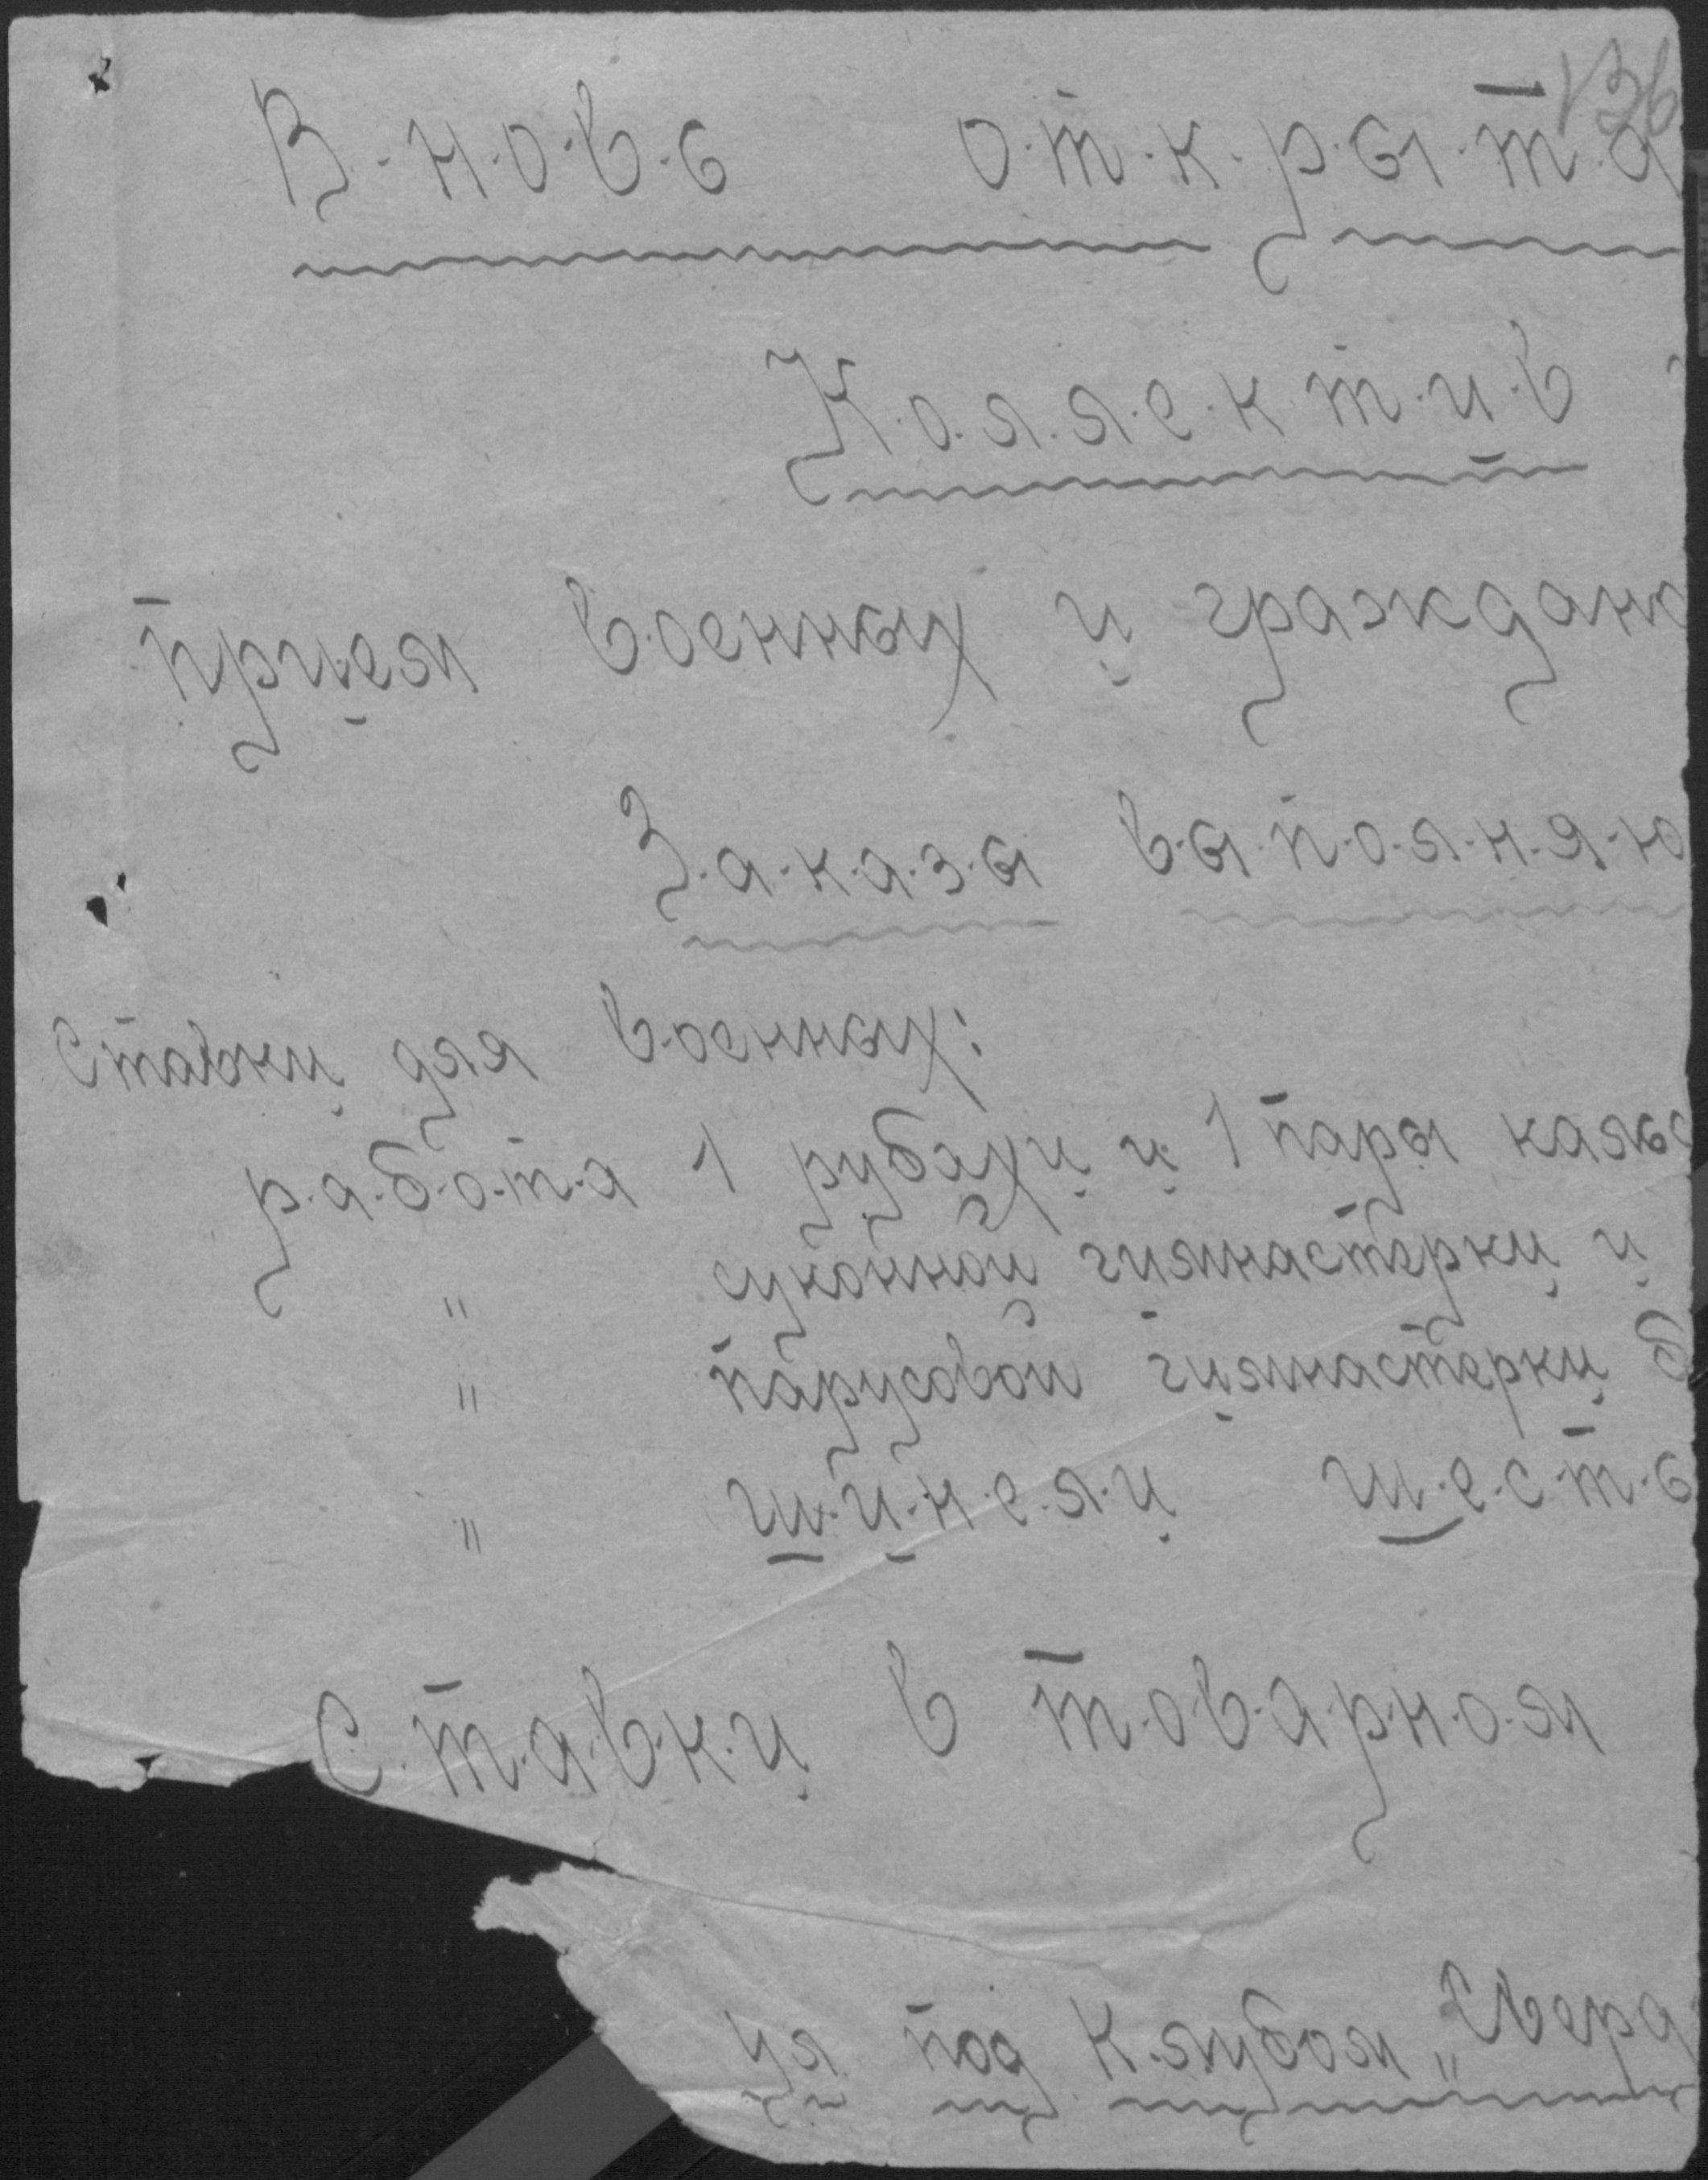 136
В.н.о.в.ь о.т.к.р.ы.т.а
К.о.л.л.е.к.т.и.в
прием военных и гражданс
З.а.к.а.з.ы в.ы.п.о.л.н.я.ю
Ставки для военных:
р.а.б.о.т.а 1 рубахи и 1 пары кальс
" суконной гимнастерки и
" парусовой гимнастерки б
" ш.и.н.е.л.и ш.е.с.т.ь
С.т.а.в.к.и в т.о.в.а.р.н.о.м
ул. под Клубом „Сверд